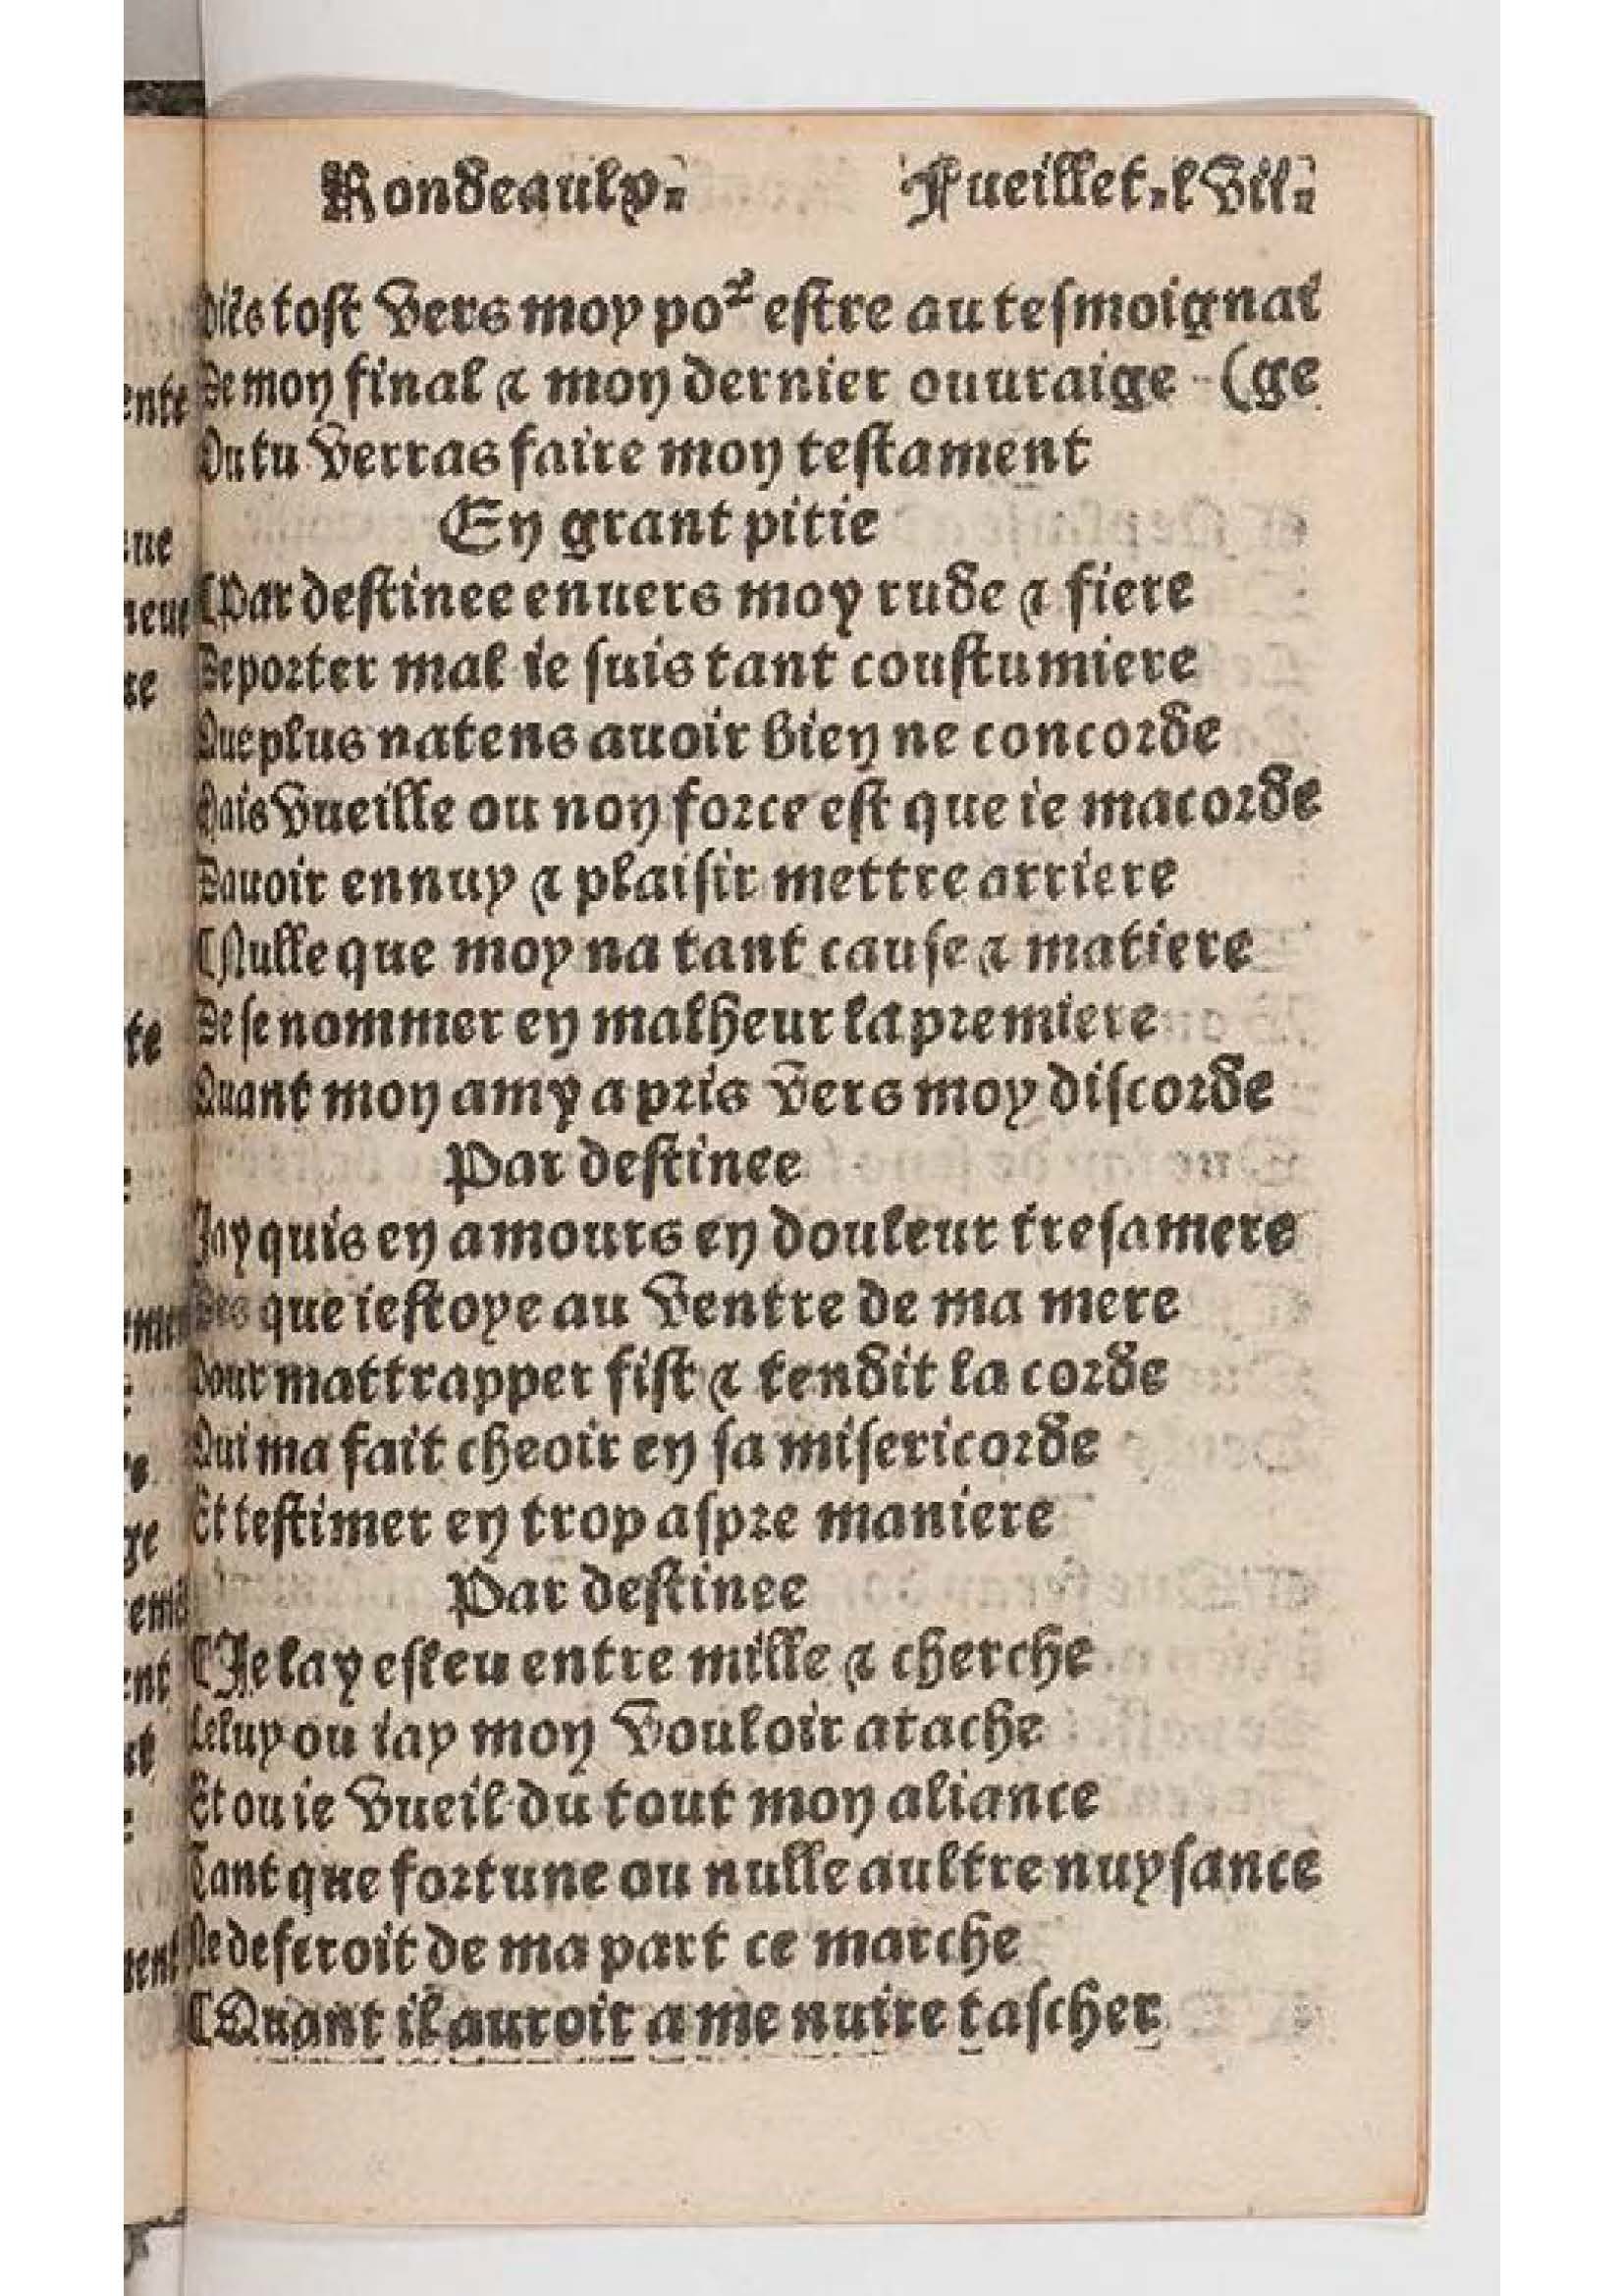 Rondeaulx. Fueillet. lvii.
Viẽs tost vers moy poꝛ estre au tesmoignai
De mon final ⁊ mon dernier ouuraige (ge
Ou tu verras faire mon testament
En grant pitie
⁋Par destinee enuers moy rude ⁊ fiere
De porter mal ie suis tant coustumiere
Que plus natens auoir bien ne concorde
Mais vueille ou non force est que ie macorde
Dauoir ennuy ⁊ plaisir mettre arriere
⁋Nulle que moy na tant cause ⁊ matiere
De se nommer en malheur la premiere
Quant mon amy a pris vers moy discorde
Par destinee
Jay quis en amours en douleur tresamere
Des que iestoye au ventre de ma mere
Pour mattrapper fist ⁊ tendit la corde
Qui ma fait cheoir en sa misericorde
Et testimer en trop aspre maniere
Par destinee
⁋Je lay esleu entre mille ⁊ cherche
Celuy ou iay mon vouloir atache
Et ou ie vueil du tout mon aliance
Tant que fortune ou nulle aultre nuysance
Ne deferoit de ma part ce marche
⁋Quant il auroit a me nuire tascher